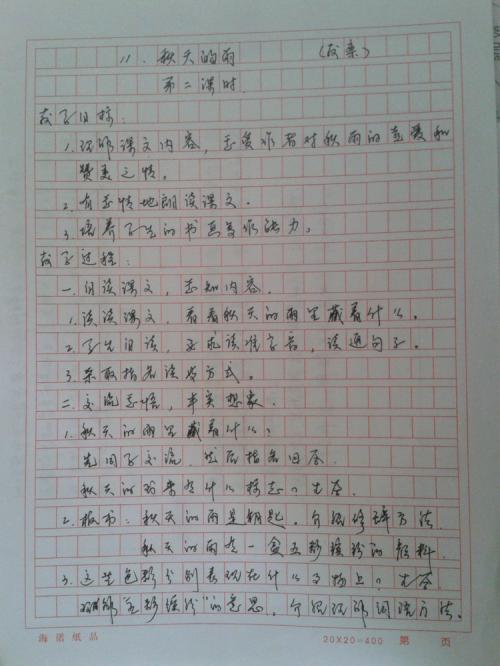 11、秋天的雨 （教案）
第二课时
教学目标：
1、理解课文内容，感受作者对秋雨的喜爱和
赞美之情。
2、有感情地朗读课文。
3、培养学生的书写等能力。
教学过程：
一、自读课文，感知内容。
1、读读课文，看看秋天的雨里藏着什么。
2、学生自读，要求读准字音，读通句子。
3、采取指名读等方式。
二、交流感悟，丰实想象。
1、秋天的雨里藏着什么？
先同学交流，然后指名回答。
秋天的雨来有什么标志？生答
2、板书：秋天的雨是钥匙。介绍修辞方法。
秋天的雨有一盒五彩缤纷的颜料
3、这些色彩分别表现在什么事物上？生答
理解“五彩缤纷”的意思。介绍理解词语方法。
海诺纸品 20×20=400 第 页